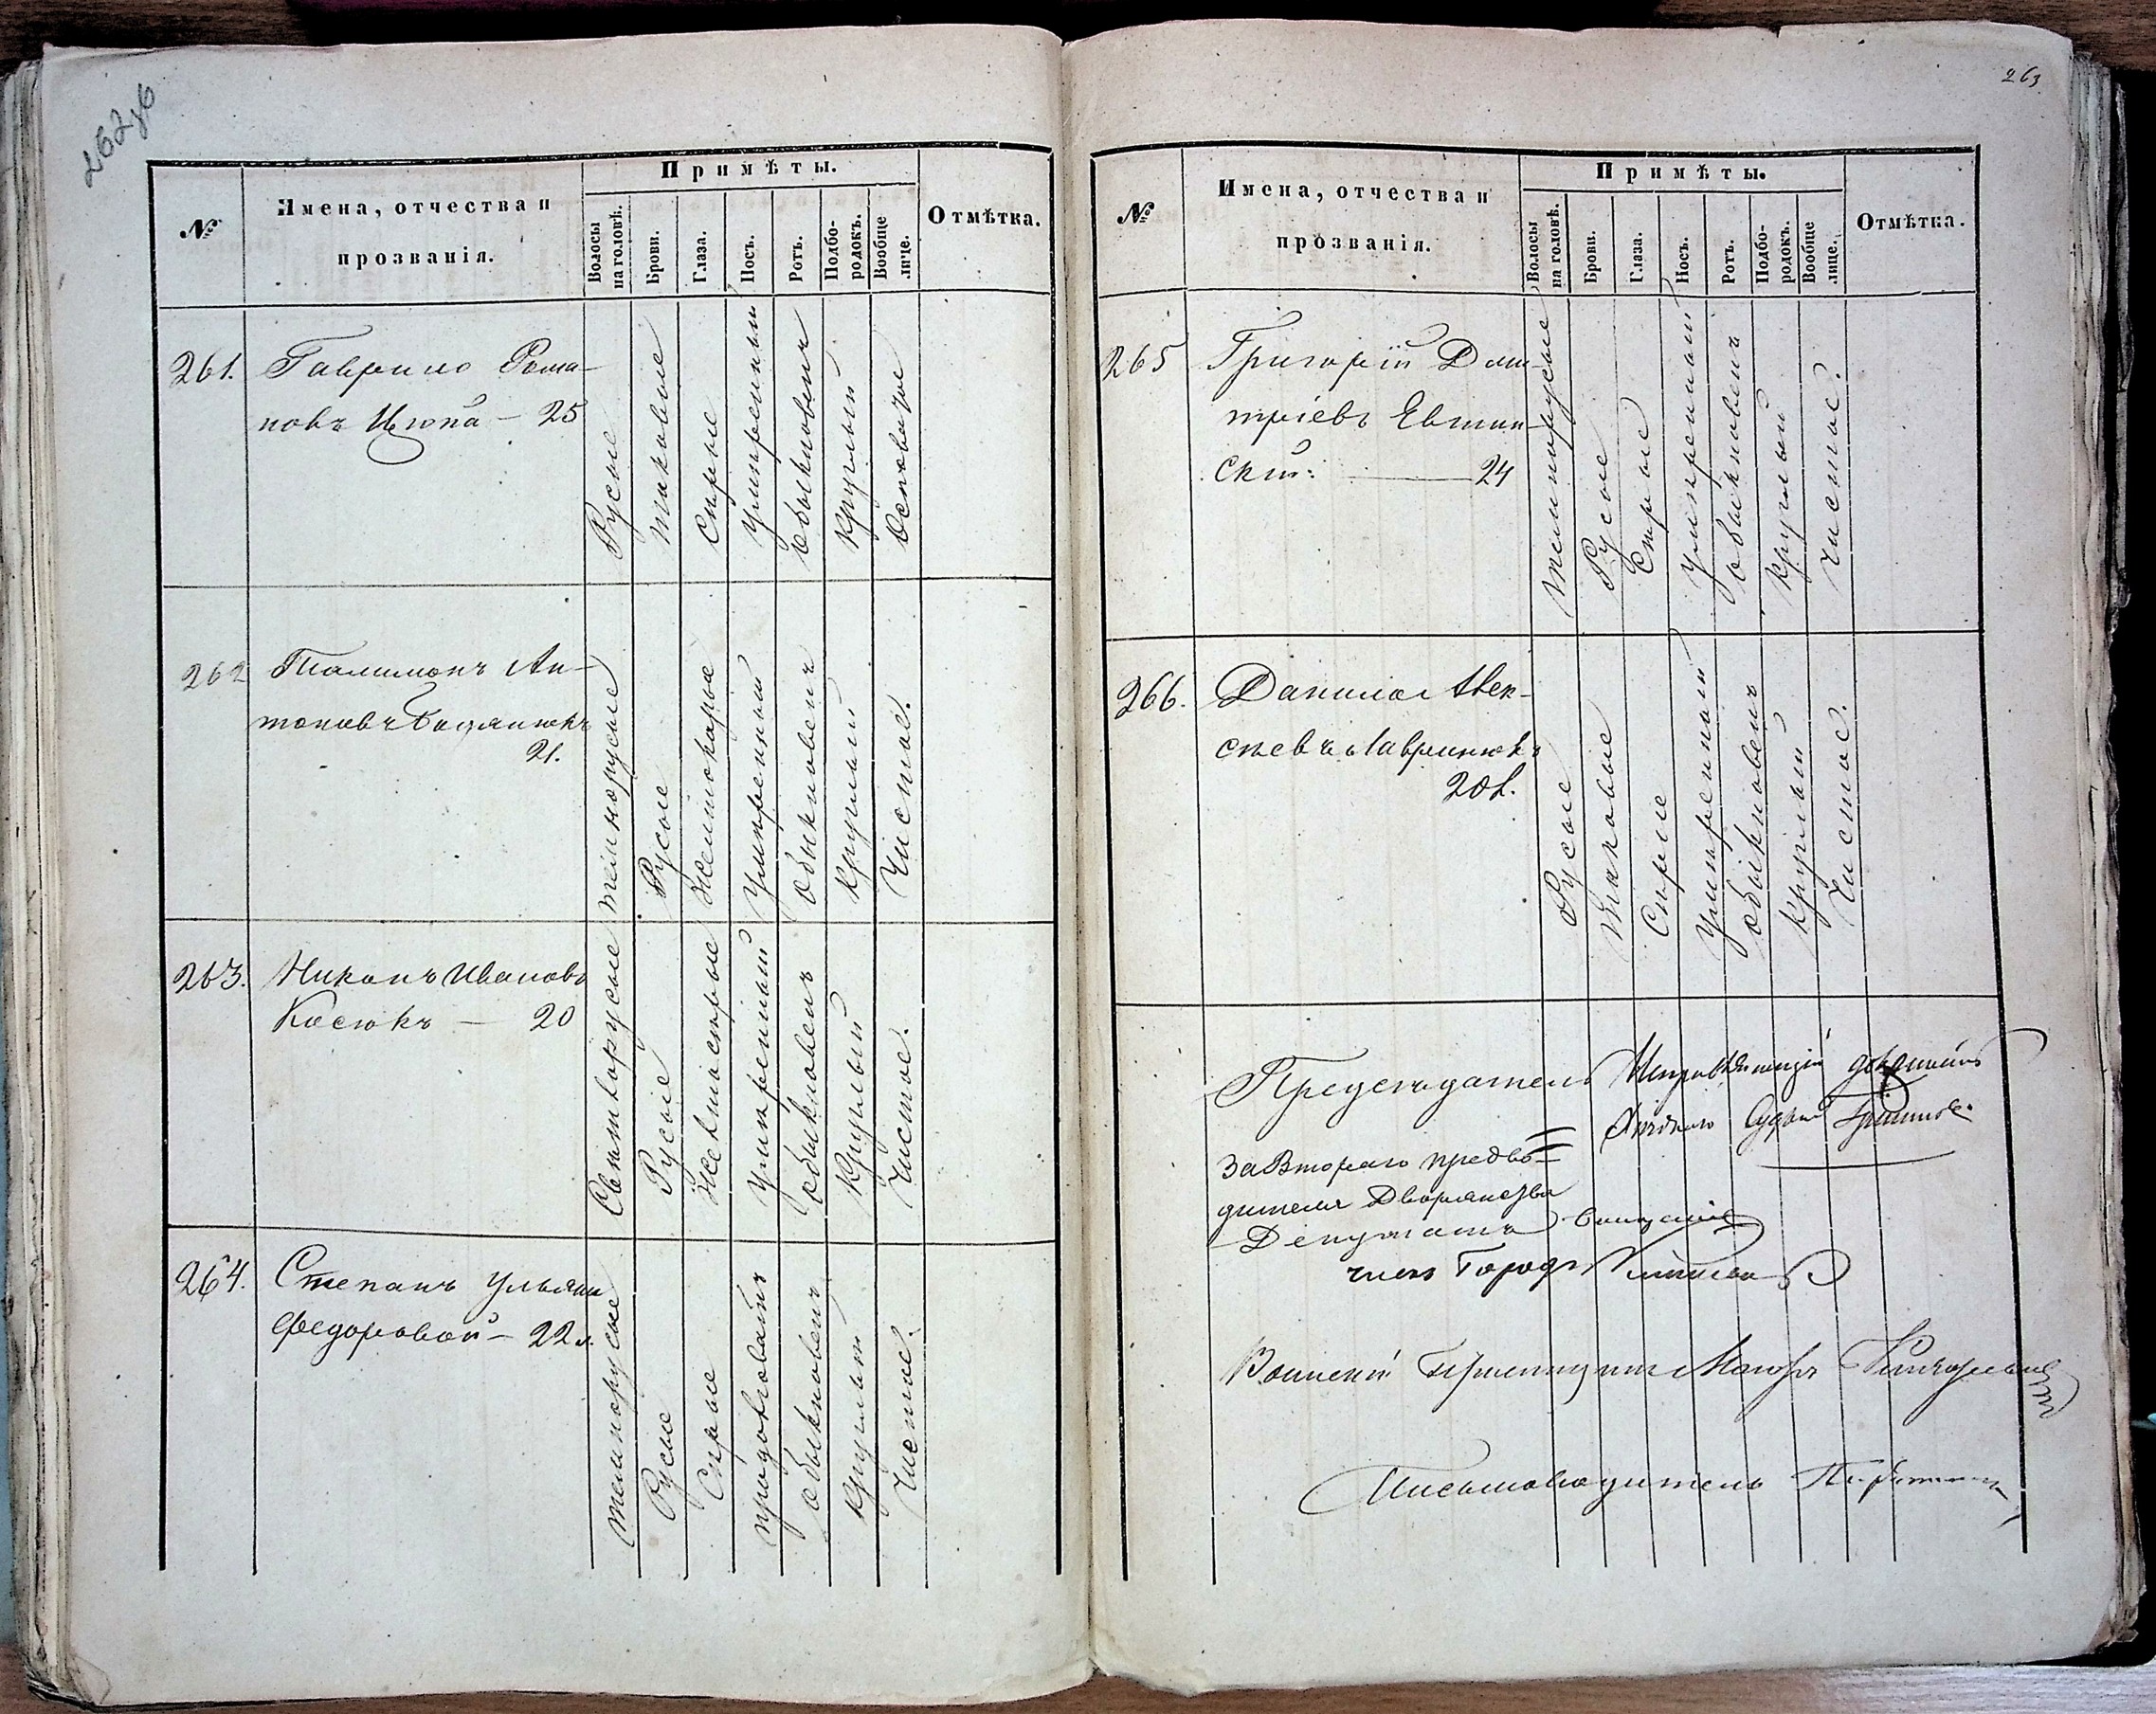 262об
№
Имена, отчества и
прозванія.
Примѣты.
Волосы
на головѣ.
Брови.
Глаза.
Носъ.
Ротъ.
Подбо-
родокъ.
Вообще
лице.
Отмѣтка.
261.
Гаврило Рома-
новъ Цюпа — 25
Русые
таковые
Сѣрые
умѣренный
обыкновенъ
круглый
Осповатое
262
Ан-
тоновъ
21.
темнорусые
Русые
Желтокаріе
Умѣренный
обыкновенъ
круглый
Чистое.
263.
Никонъ Ивановъ
Косюкъ — 20
Свѣтлорусые
Русые
умѣренный
обыкновенъ
круглый
Чистое.
264.
Степанъ Ульян
Федоровой — 22 л.
темнорусые
Русые
Сѣрые
продолговатъ
обыкновенъ
круглый
Чистое.
263
№
Имена, отчества и
прозванія.
Примѣты.
Волосы
на головѣ.
Брови.
Глаза.
Носъ.
Ротъ.
Подбо-
родокъ.
Вообще
лице.
Отмѣтка.
265
Григорій Дми-
тріевъ
24
темнорусые
Русые
Сѣрые
Умѣренный
обыкновенъ
круглый
Чистое.
266.
Данило Алек-
сѣевъ Лавринюкъ
20 л.
Русые
таковые
Сѣрые
Умѣренный
обыкновенъ
круглый
Чистое.
Предсѣдатель
За Втораго предво-
дителя Дворянства
Депутатъ
членъ
Воинскій Маіоръ
Письмоводитель